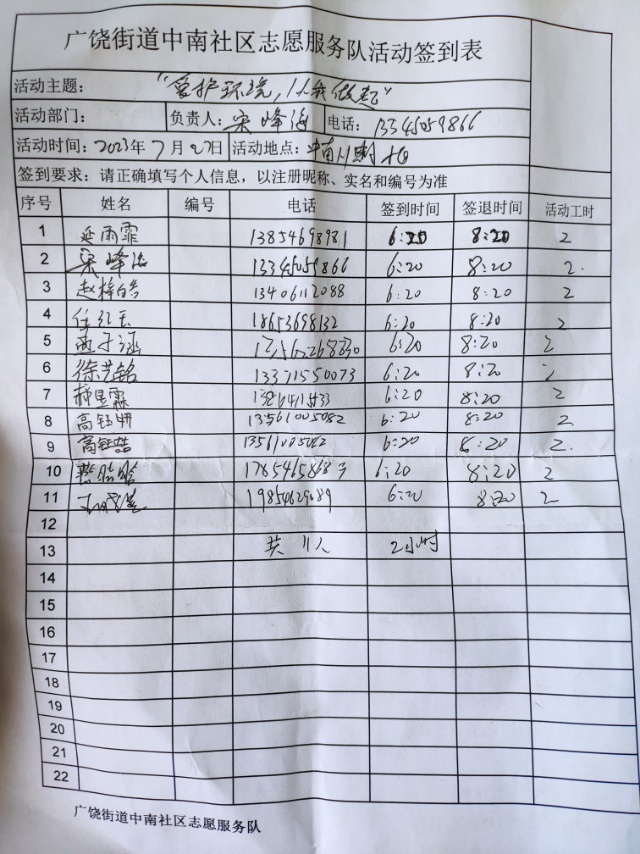 广饶街道中南社区志愿服务队活动签到表
活动主题： "爱护环境，从我做起"
活动部门： 负责人：宋峰海 电话：13345059866
活动时间：2023年7月27日 活动地点：中南
签到要求：请正确填写个人信息，以注册昵称、实名和编号为准
序号 姓名 编号 电话 签到时间 签退时间 活动工时
1 延雨霏 13854698981 6:20 8:20 2
2 宋峰海 13345059866 6:20 8:20 2.
3 赵梓皓 13406112088 6:20 8:20 2
4 任红玉 18653698132 6:20 8:20 2
5 6:20 8:20 2
6 徐艺铭 13371550073 6:20 8:20 2
7 6:20 8:20 2
8 高钰玥 13561005082 6:20 8:20 2
9 高钰喆 13561005082 6:20 8:20 2.
10 6:20 8:20 2
11 6:20 8:20 2
12
13 共11人 2小时
14
15
16
17
18
19
20
21
22
广饶街道中南社区志愿服务队